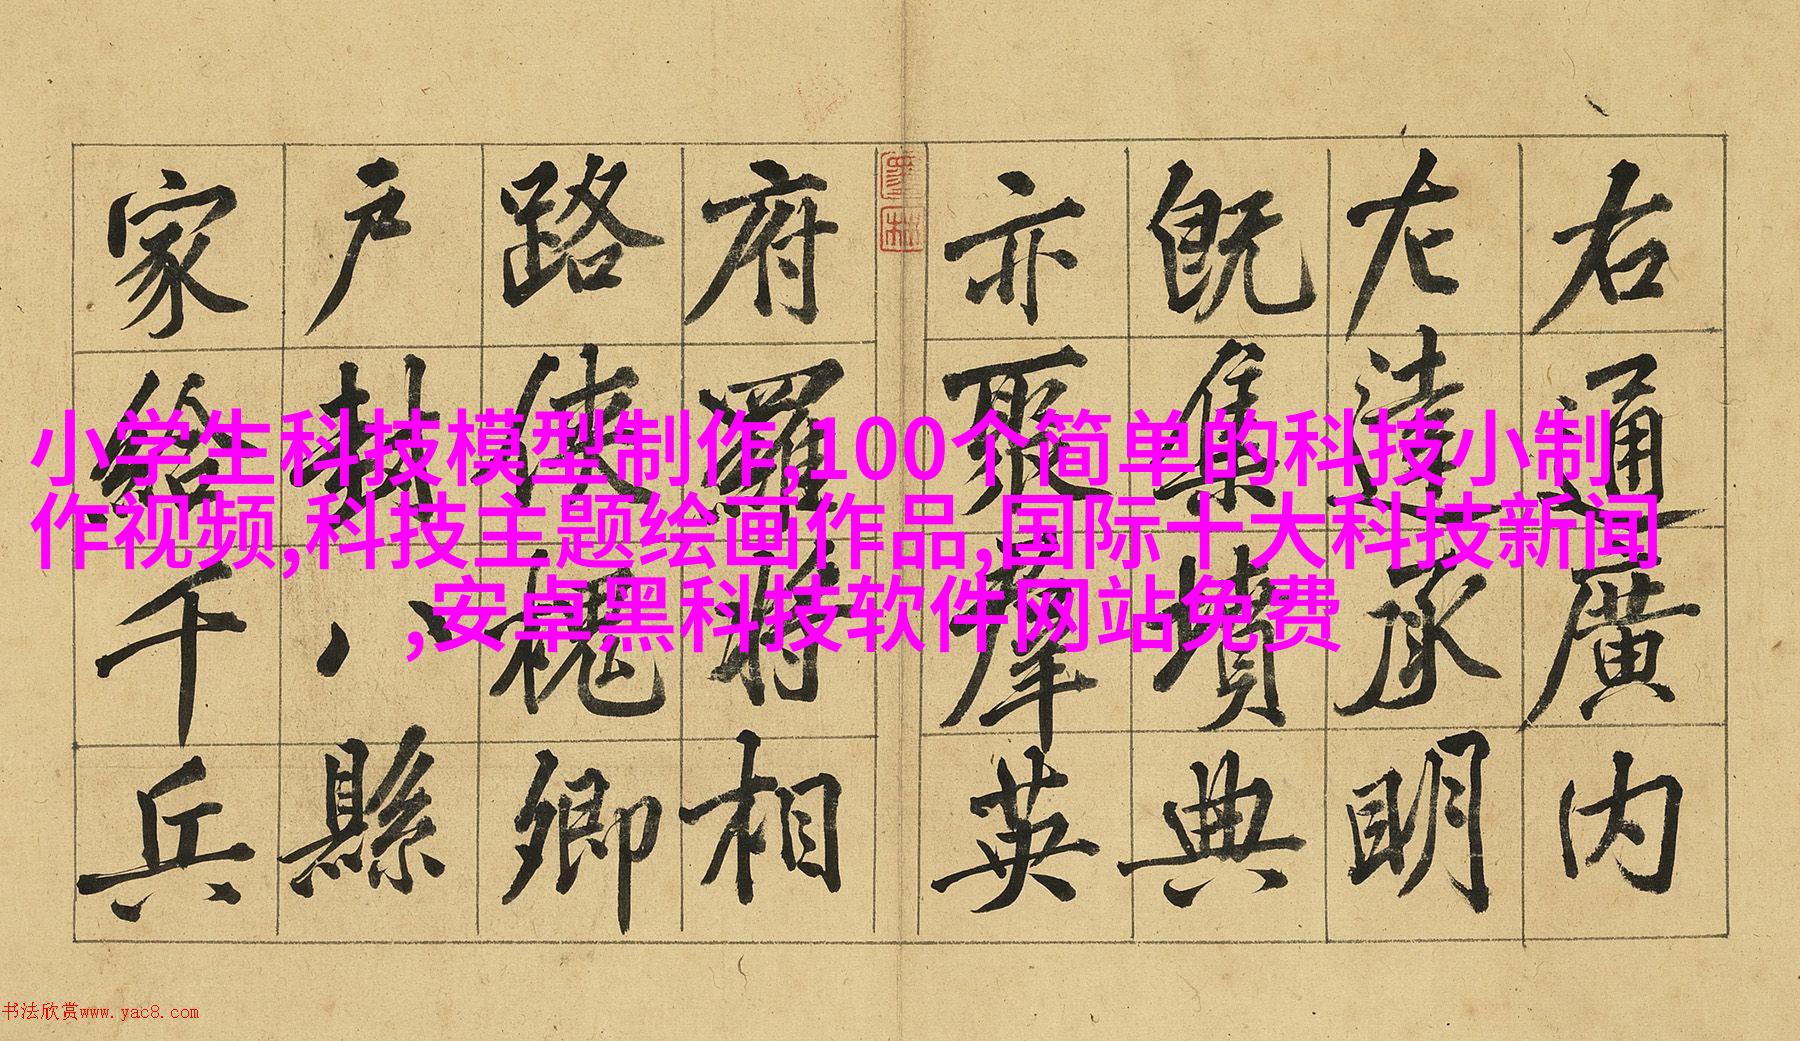 右通廣内
左達承明
既集墳典
亦聚羣英
府羅將相
路俠槐卿
户封八縣
家給千兵
小学生科技模型制作,100个简单的科技小制
作视频,科技主题绘画作品,国际十大科技新闻
,安卓黑科技软件网站免费
书法欣赏www.yac8.com